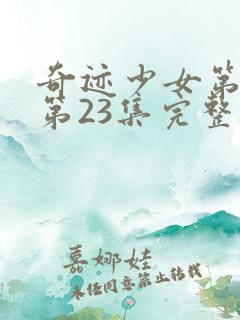 奇迹少女第
第23集完整
慕娜娃
未经同意禁止转载